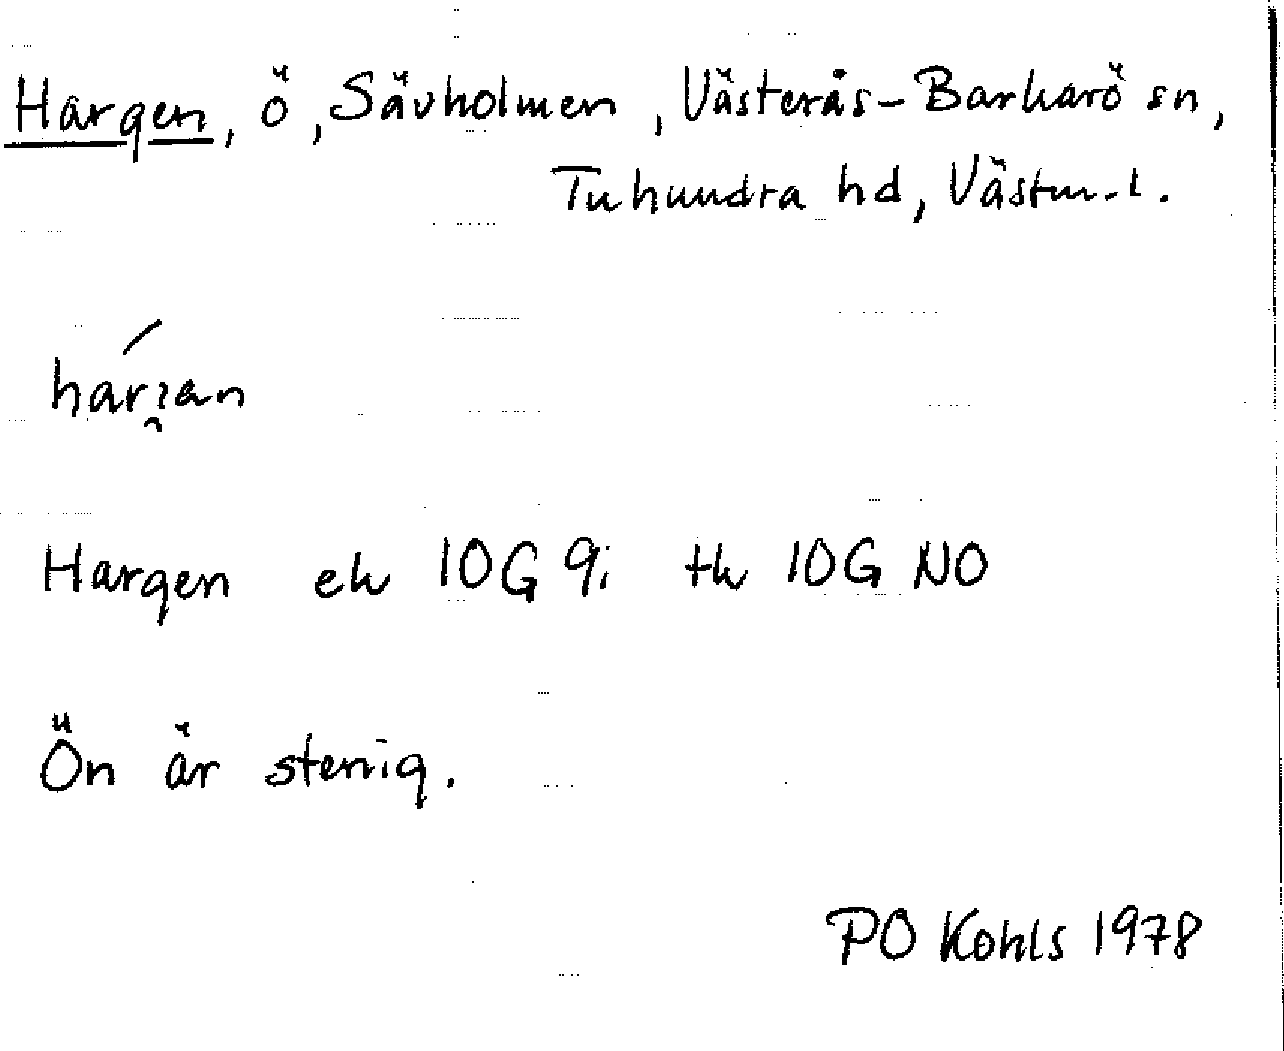 Hargen, ö, Sävholmen, Västerås-Barkarö sn,
Tuhundra hd, Västm. l.
Hargen ek 10G 9i tk 10G NO
Ön är stenig.
PO Kohls 1978